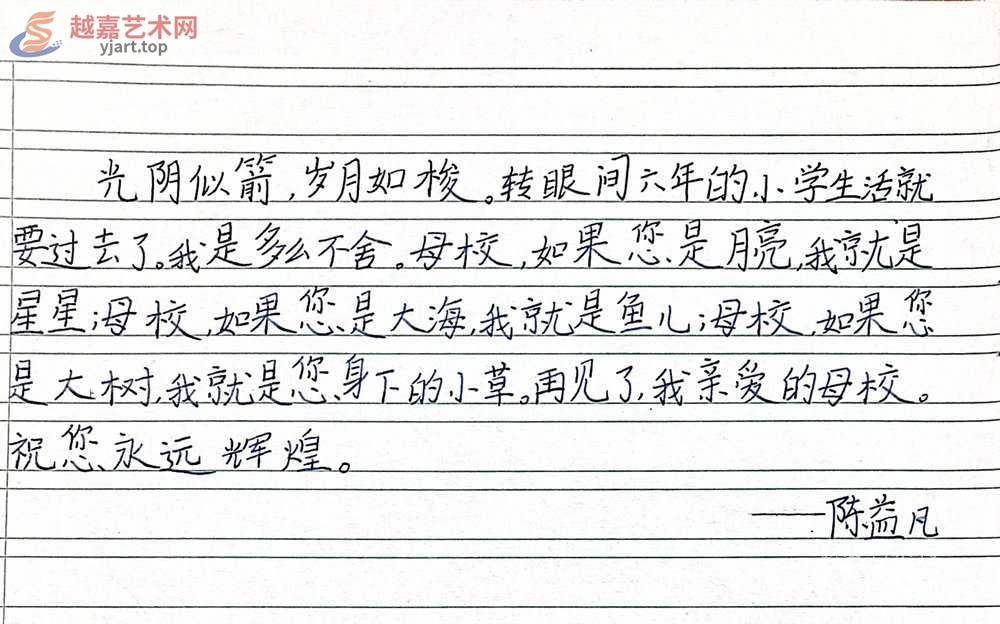 越嘉艺术网
yjart.top
光阴似箭，岁月如梭。转眼间六年的小学生活就
要过去了。我是多么不舍。母校，如果您是月亮，我就是
星星；母校，如果您是大海，我就是鱼儿；母校，如果您
是大树，我就是您身下的小草。再见了，我亲爱的母校。
祝您永远辉煌。
——陈益凡